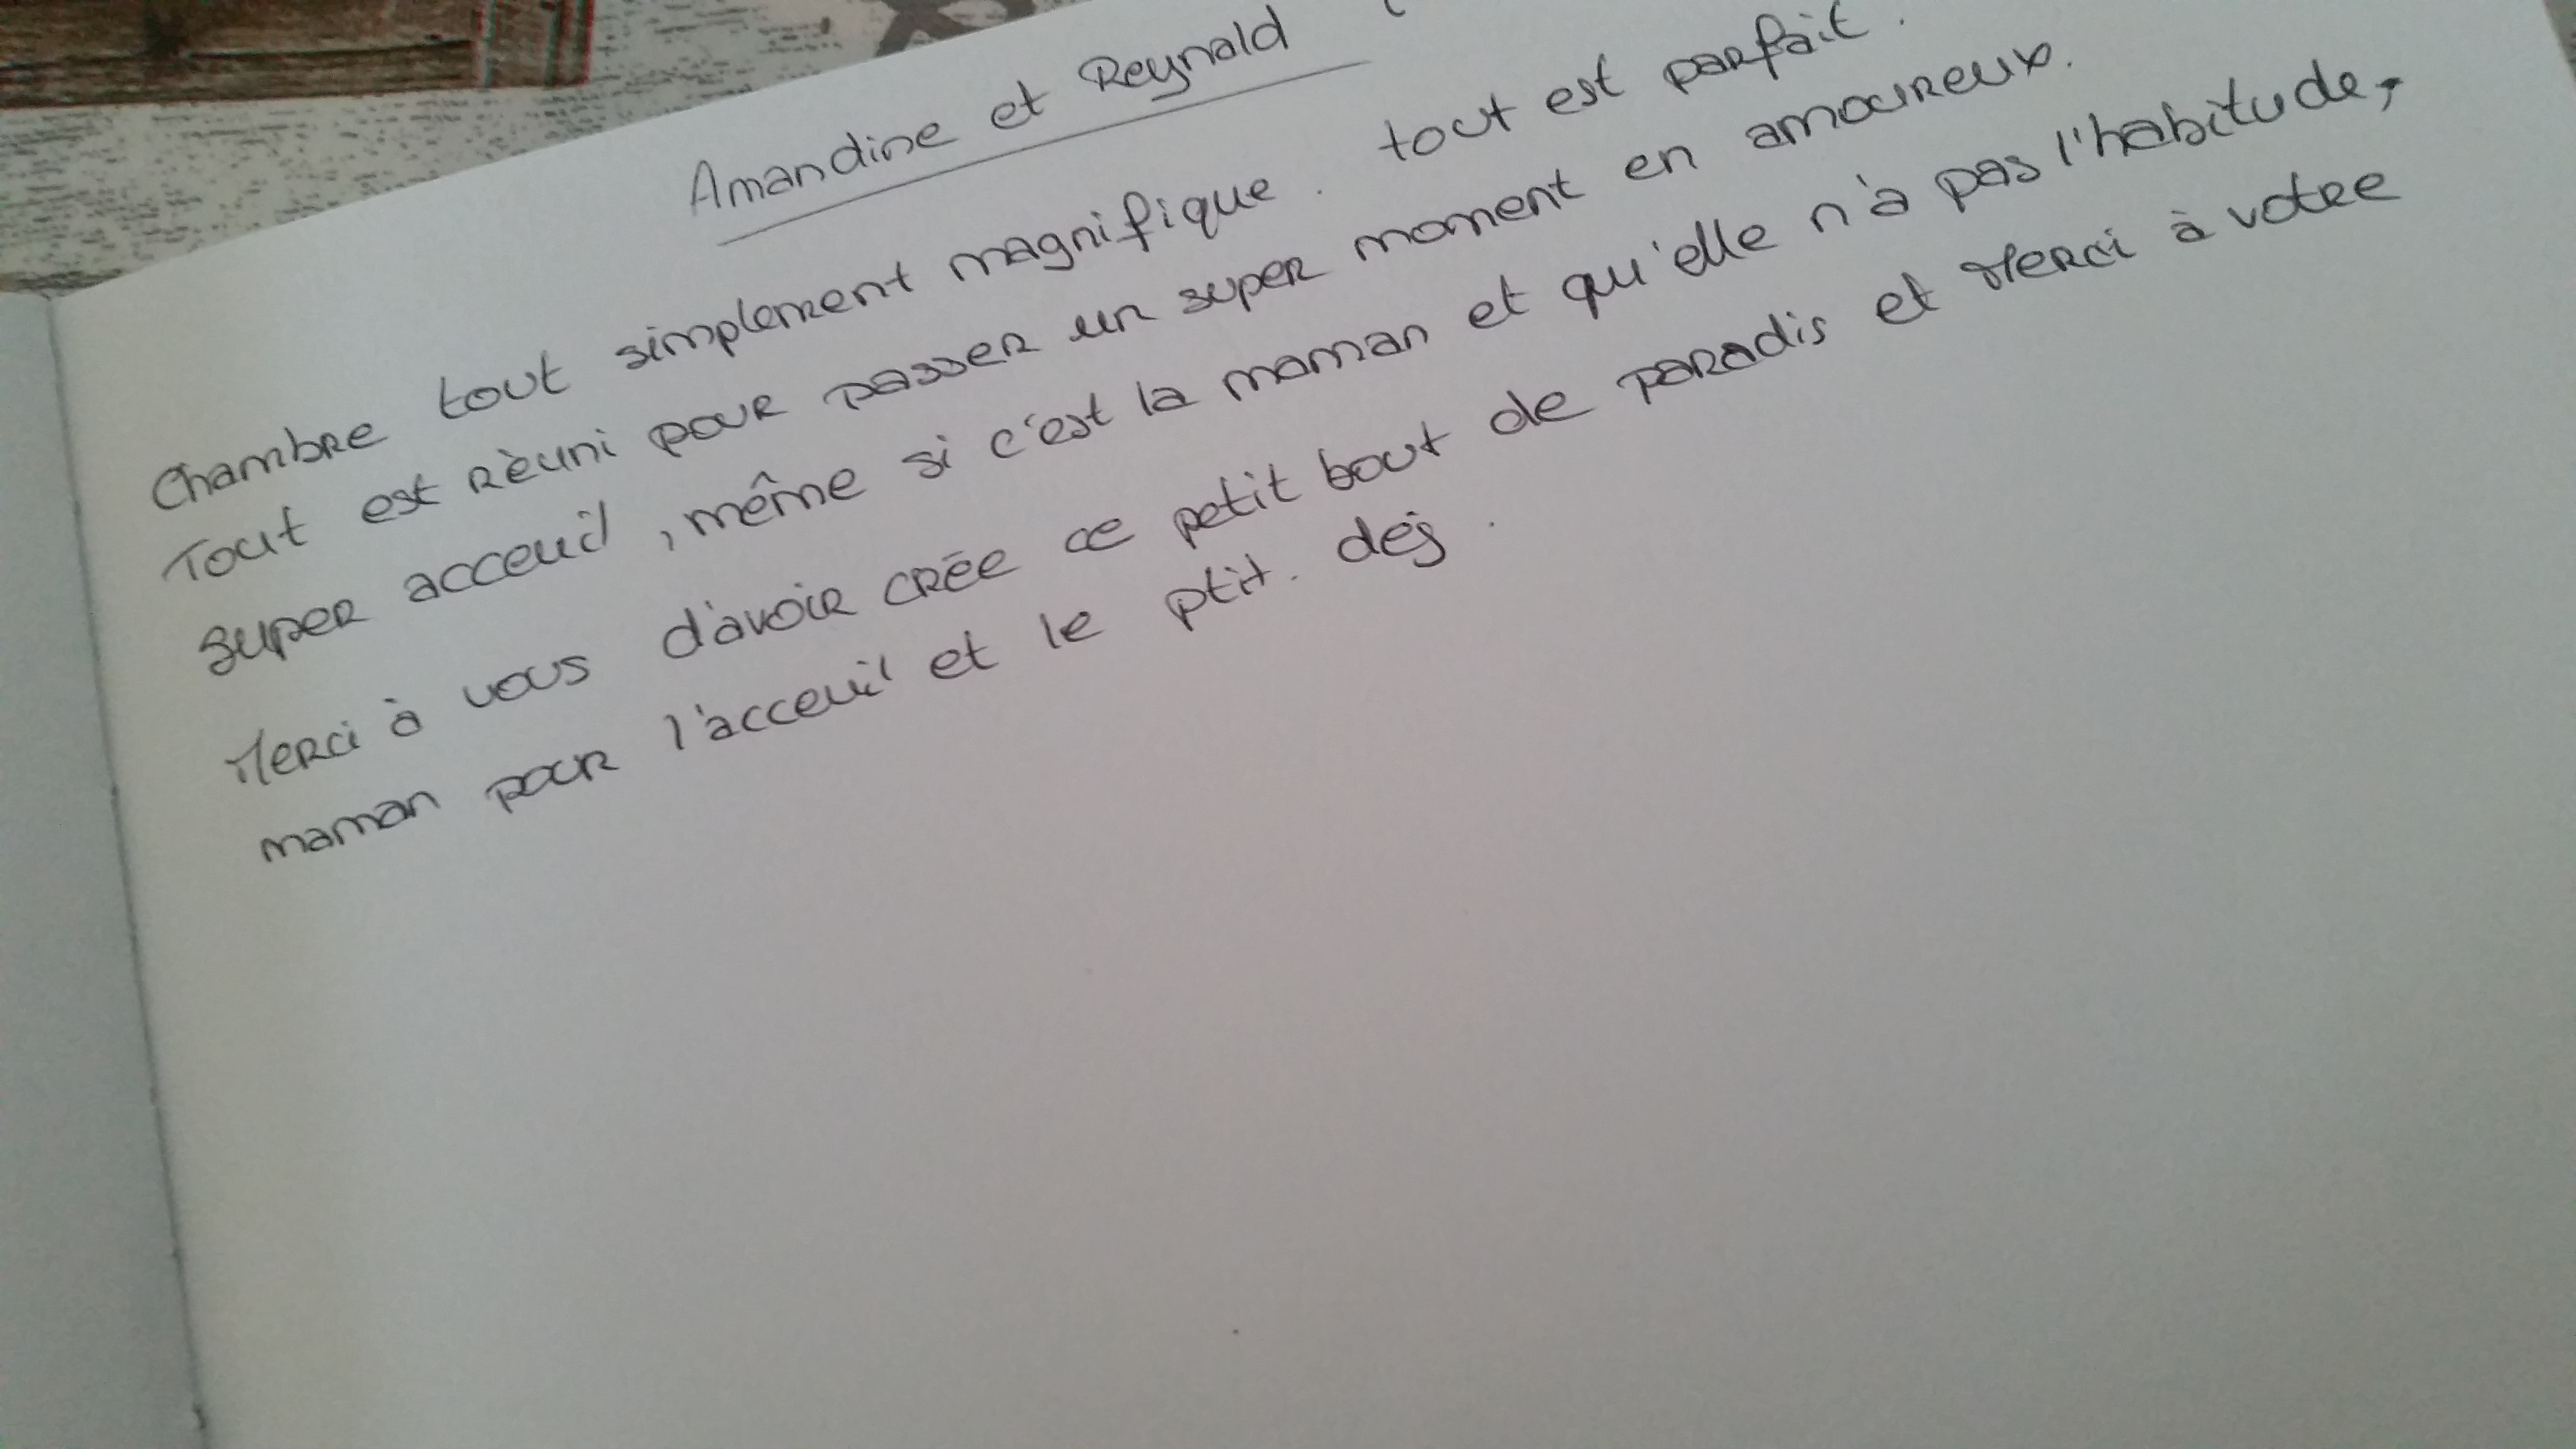 Amandine et Reynald
Chambre tout simplement magnifique. tout est parfait.
Tout est réuni pour passer un super moment en amoureux.
Super acceuil, même si c'est la maman et qu'elle n'a pas l'habitude,
Merci à vous d'avoir crée ce petit bout de paradis et Merci à votre
maman pour l'acceuil et le ptit. dej.